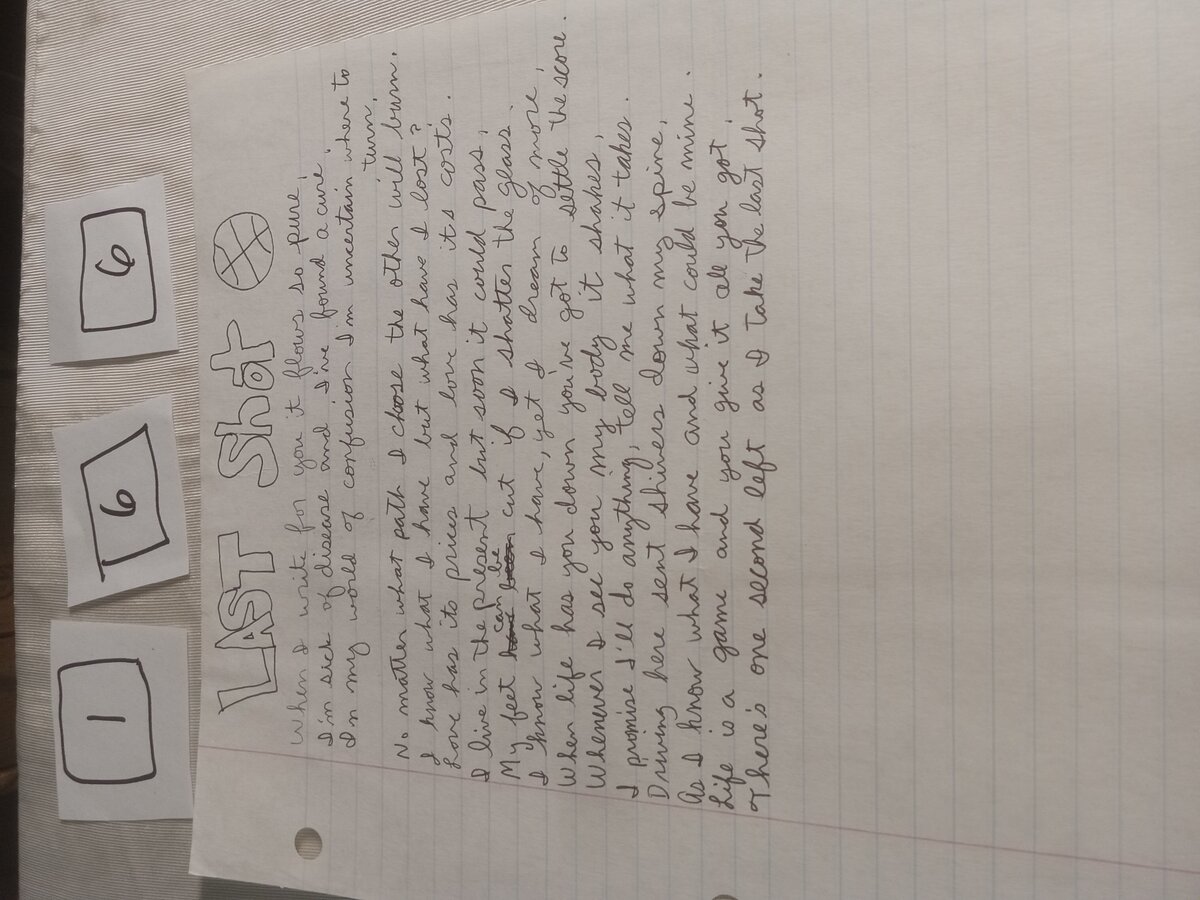 1 6 6
LAST Shot
When I write for you it flows so pure,
I'm sick of disease and I've found a cure,
In my world of confusion I'm uncertain where to
turn.
No matter what path I choose the other will burn.
I know what I have but what have I lost?
Love has its prices and love has its costs.
I live in the present but soon it could pass,
My feet can be cut if I shatter the glass.
I know what I have, yet I dream of more,
When life has you down you've got to settle the score.
Whenever I see you my body it shakes,
I promise I'll do anything, tell me what it takes.
Driving here sent shivers down my spine,
As I know what I have and what could be mine.
Life is a game and you give it all you got,
There's one second left as I take the last shot.